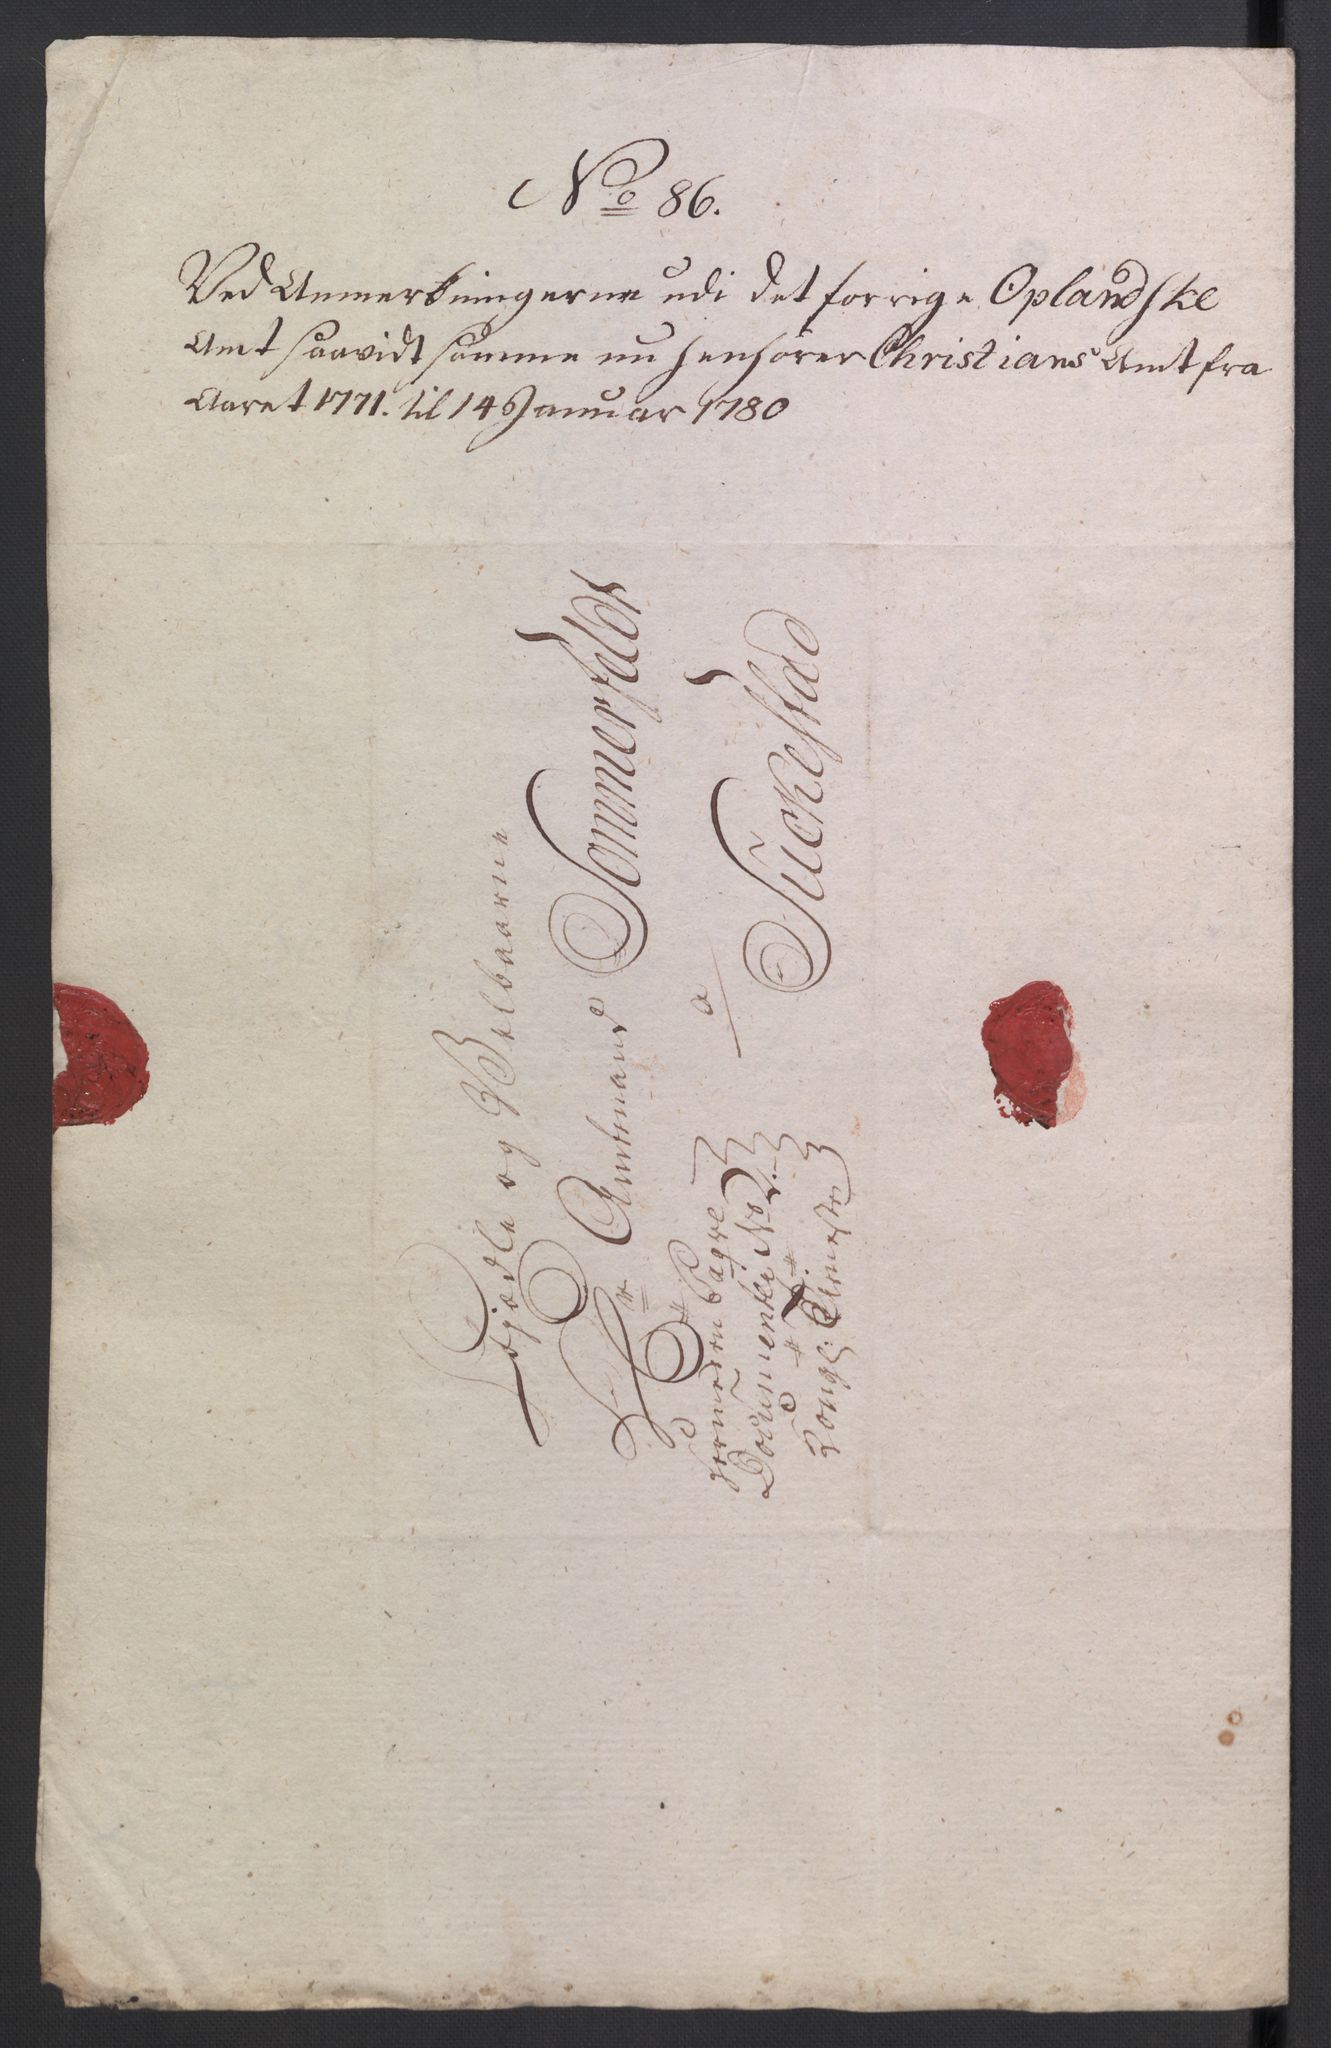 No 86.
Ved Anmerkningerne udi det forrige Oplandske
Amt saavidt samme nu henhörer Christians Amt fra
Aaret 1771. til 14 Januar 1780
og Velbaarne
Hr Amtmand Sommerfeldt
a
Tuckestad
Documenter No
Kongl: